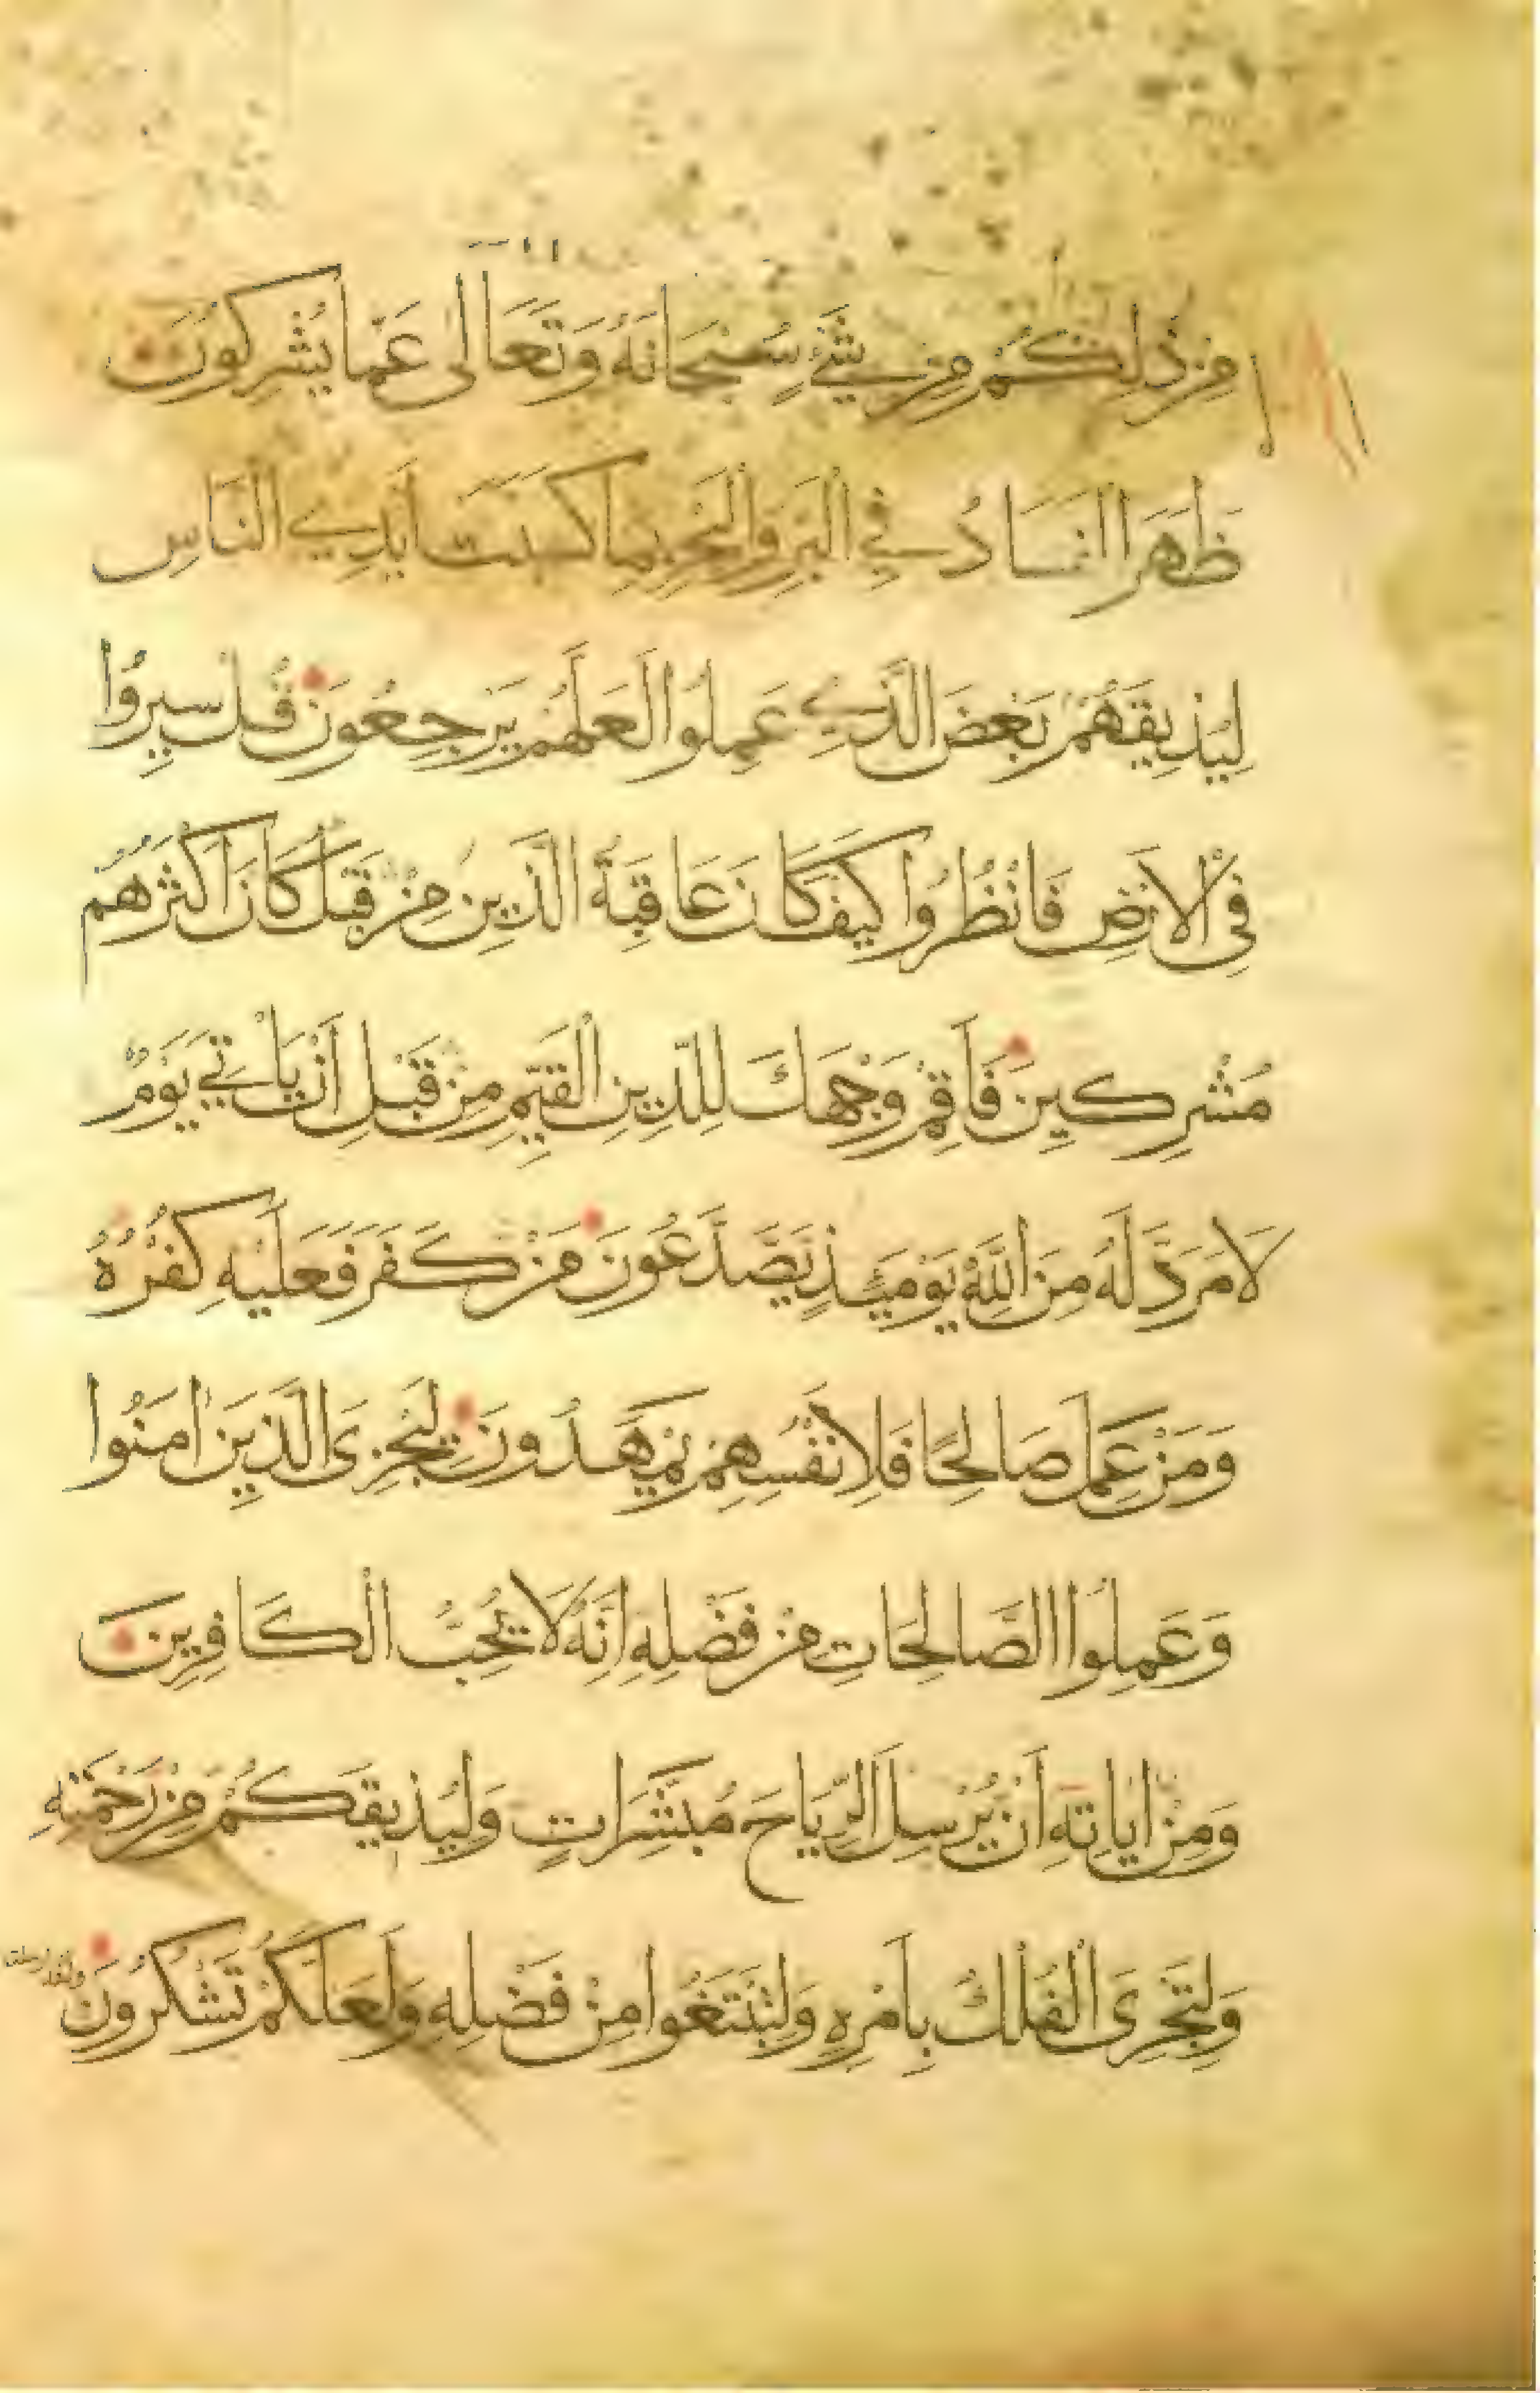 مِنْ ذٰلِكُمْ مِنْ شَيْءٍ سُبْحَانَهُ وَتَعَالٰى عَمَّا يُشْرِكُونَ
ظَهَرَ الْفَسَادُ فِي الْبَرِّ وَالْبَحْرِ بِمَا كَسَبَتْ اَيْدِي النَّاسِ
لِيُذِيقَهُمْ بَعْضَ الَّذِي عَمِلُوا لَعَلَّهُمْ يَرْجِعُونَ قُلْ سِيرُوا
فِي الْاَرْضِ فَانْظُرُوا كَيْفَ كَانَ عَاقِبَةُ الَّذِينَ مِنْ قَبْلُ كَانَ اَكْثَرُهُمْ
مُشْرِكِينَ فَاَقِمْ وَجْهَكَ لِلدِّينِ الْقَيِّمِ مِنْ قَبْلِ اَنْ يَأْتِيَ يَوْمٌ
لَا مَرَدَّ لَهُ مِنَ اللّٰهِ يَوْمَئِذٍ يَصَّدَّعُونَ مَنْ كَفَرَ فَعَلَيْهِ كُفْرُهُ
وَمَنْ عَمِلَ صَالِحًا فَلِاَنْفُسِهِمْ يَمْهَدُونَ لِيَجْزِىَ الَّذِينَ اٰمَنُوا
وَعَمِلُوا الصَّالِحَاتِ مِنْ فَضْلِهِ اِنَّهُ لَا يُحِبُّ الْكَافِرِينَ
وَمِنْ اٰيَاتِهِ اَنْ يُرْسِلَ الرِّيَاحَ مُبَشِّرَاتٍ وَلِيُذِيقَكُمْ مِنْ رَحْمَتِهِ
وَلِتَجْرِىَ الْفُلْكُ بِاَمْرِهِ وَلِتَبْتَغُوا مِنْ فَضْلِهِ وَلَعَلَّكُمْ تَشْكُرُونَ
ولقد ارسلنا